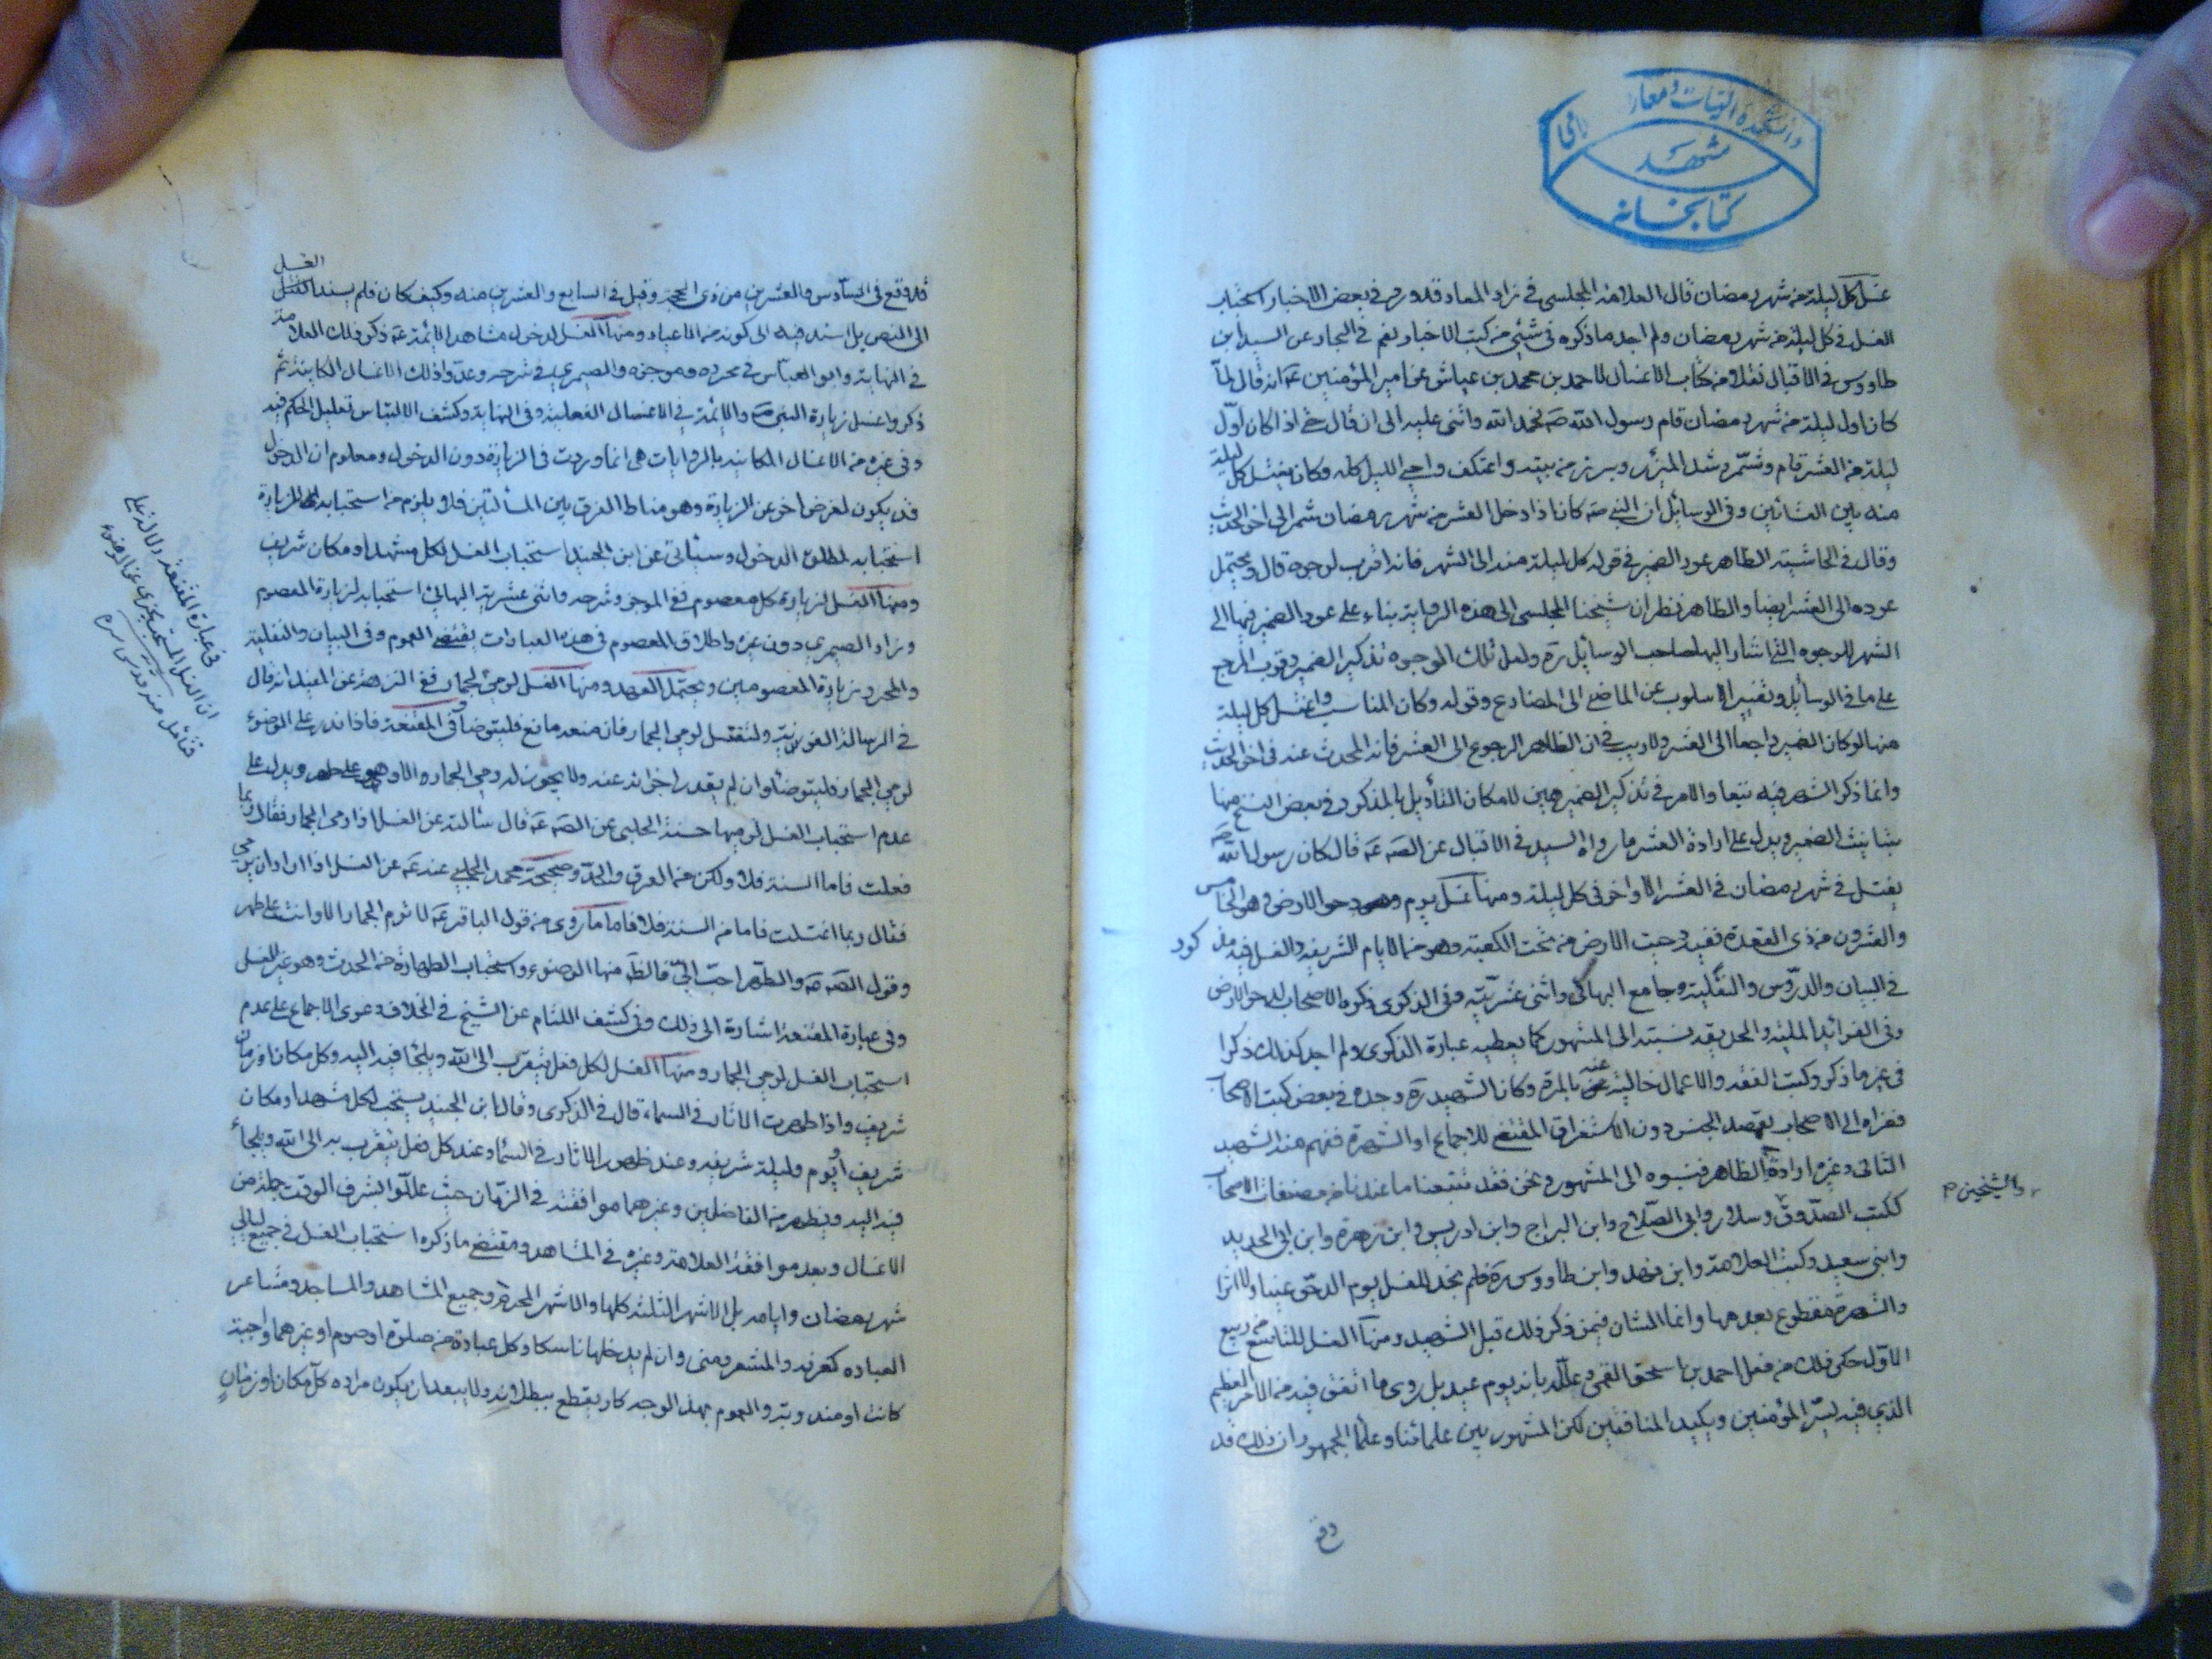 دانشکده الهیات و معارف
اسلامی
مشهد
کتابخانه
غسل كل ليلة من شهر رمضان قال العلامة المجلسي في زاد المعاد قد ورد في بعض الاخبار استحباب
الغسل في كل ليلة من شهر رمضان ولم اجد ما ذكره في شئ من كتب الاخبار نعم في البحار عن السيد ابن
طاووس في الاقبال نقلا من كتاب الاغسال لاحمد بن محمد بن عياش عن امير المؤمنين عه انه قال لما
كان اول ليلة من شهر رمضان قام رسول الله صه فحمد الله واثنى عليه الى ان قال حتى اذا كان اول
ليلة من العشر قام وشمر وشد الميزر وبرز من بيته واعتكف واحيى الليل كله وكان يغتسل كل ليلة
منه بين العشائين وفي الوسائل ان النبي صه كان اذا دخل العشر من شهر رمضان شمر الى اخر الحديث
وقال في الحاشية الظاهر عود الضمير في قوله كل ليلة منه الى الشهر فانه اقرب لوجوه قال ويحتمل
عوده الى العشر ايضا والظاهر نظر ان شيخنا المجلسي الى هذه الرواية بناء على عود الضمير فيها الى
الشهر للوجوه التي اشار اليها صاحب الوسائل ره ولعل تلك الوجوه تذكير الضمير وقرب المرجع
على ما في الوسائل وتغيير الاسلوب عن الماضي الى المضارع وقوله وكان المناسب واغتسل كل ليلة
منها لو كان الضمير راجعا الى العشر ولا ريب في ان الظاهر الرجوع الى العشر فانه المحدث عنه في اخر الحديث
وانما ذكر الشهر فيه تبعا والامر في تذكير الضمير هين لامكان التأويل بالمذكور وفي بعض النسخ منها
بتانيث الضمير ويدل على ارادة العشر ما رواه السيد في الاقبال عن الصه عه قال كان رسول الله صه
يغتسل في شهر رمضان في العشر الاواخر في كل ليلة ومنها غسل يوم دحو الارض وهو الخامس
والعشرون من ذي القعدة ففيه دحيت الارض من تحت الكعبة وهو من الايام الشريفة والغسل فيه مذكور
في البيان والدروس والنفلية وجامع البهائي واثنى عشريته وفي الذكرى ذكره الاصحاب لدحو الارض
وفي الفوائد الملية والحديقة نسبته الى المشهور كما يعطيه عبارة الذكرى ولم اجد كذلك ذكرا
في غير ما ذكر وكتب الفقه والاعمال خالية عنه بالمرة وكان الشهيد ره وجده في بعض كتب الاصحاب
فعزاه الى الاصحاب بقصد الجنس دون الاستغراق المقتضي للاجماع او الشهرة ففهم منه الشهيد
الثاني وغيره ارادة الظاهر فنسبوه الى المشهور ونحن فقد تتبعنا ما عندنا من مصنفات الاصحاب
ككتب الصدوق والشيخين وسلار وابي الصلاح وابن البراج وابن ادريس وابن زهرة وابن ابي الحديد
وابني سعيد وكتب العلامة وابن فهد وابن طاووس ره فلم نجد للغسل يوم الدحو عينا ولا اثرا
والشهرة مقطوع بعدمها وانما الشان فيمن ذكر ذلك قبل الشهيد ومنها الغسل للتاسع من ربيع
الاول حكى ذلك من فعل احمد بن اسحق القمي وعلله بانه يوم عيد بل روى ما اتفق فيه من الامر العظيم
الذي فيه يسر المؤمنين ويكيد المنافقين لكن المشهور بين علمائنا وعلماء الجمهور ان ذلك قد
وقع
قد وقع في السادس والعشرين من ذي الحجة وقيل في السابع والعشرين منه وكيف كان فلم يسند الغسل
الى النص بل استند فيه الى كونه من الاعياد ومنها الغسل لدخول مشاهد الائمة عه ذكر ذلك العلامة
في النهاية وابو العباس في محرره وموجزه والصيمري في شرحه وعدوا ذلك الاغسال المكانية ثم
ذكروا غسل زيارة النبي صه والائمة في الاغسال الفعلية وفي النهاية وكشف الالتباس تعليل الحكم فيه
وفي غيره من الاغسال المكانية بالروايات هي انما وردت في الزيارة دون الدخول ومعلوم ان الدخول
قد يكون لغرض اخر عن الزيارة وهو مناط الفرق بين المسألتين فلا يلزم من استحبابه للزيارة
استحبابه لمطلق الدخول وسيأتي عن ابن الجنيد استحباب الغسل لكل مشهد او مكان شريف
ومنها الغسل لزيارة كل معصوم ففي الموجز وشرحه واثنى عشرية البهائي استحبابه لزيارة المعصوم
وزاد الصيمري دون غيره واطلاق المعصوم في هذه العبارات يقتضي العموم وفي البيان والنفلية
والمحرر زيارة المعصومين ويحتمل العهد ومنها الغسل لرمي الجمار ففي النزهة عن المفيد انه قال
في الرسالة الغرية ولتغتسل لرمي الجمار فان منعه مانع فليتوضأ وفي المقنعة فاذا قدر على الوضوء
لرمي الجمار فليتوضأ وان لم يقدر اجزائه عنه ولا يجوز له رمي الجمار الا وهو على طهر ويدل على
عدم استحباب الغسل لرميها حسنة الحلبي عن الصه عه قال سألته عن الغسل اذا رمى الجمار فقال ربما
فعلت فاما السنة فلا ولكن من العرق والحر وصحيحة محمد الحلبي عنه عه عن الغسل اذا اراد ان يرمي
فقال ربما اغتسلت فاما من السنة فلا فاما ما روى من قول الباقر عه لا ترم الجمار الا وانت على طهر
وقول الصه عه والطهر احب الي فالظه منها الوضوء واستحباب الطهارة من الحدث وهو غير الغسل
وفي عبارة المقنعة اشارة الى ذلك وفي كشف اللثام عن الشيخ في الخلاف دعوى الاجماع على عدم
استحباب الغسل لرمي الجمار ومنها الغسل لكل فعل يتقرب الى الله ويلجأ فيه اليه وكل مكان او زمان
شريف واذا ظهرت الاثار في السماء قال في الذكرى وقال ابن الجنيد يستحب لكل مشهد او مكان
شريف او يوم وليلة شريفه وعند ظهور الاثار في السماء وعند كل فعل يتقرب به الى الله ويلجأ
فيه اليه ويظهر من الفاضلين وغيرهما موافقته في الزمان حيث عللوا بشرف الوقت جملة من
الاغسال وبعد موافقة العلامة وغيره في المشاهد ومقتضى ما ذكره استحباب الغسل في جميع ليالي
شهر رمضان وايامه بل الاشهر الثلثة كلها والاشهر المحرمة وجميع المشاهد والمساجد ومشاعر
العباده كعرفه والمشعر ومنى وان لم يدخلها ناسكا وكل عبادة من صلوة او صوم او غيرهما واجبة
كانت او مندوبة والعموم بهذا الوجه كاد يقطع ببطلانه ولا يبعد ان يكون مراده كل مكان او زمان
في عبارة المقنعة دلالة على
ان الغسل المستحب يجزى عن الوضوء
فتأمل منه قدس سره